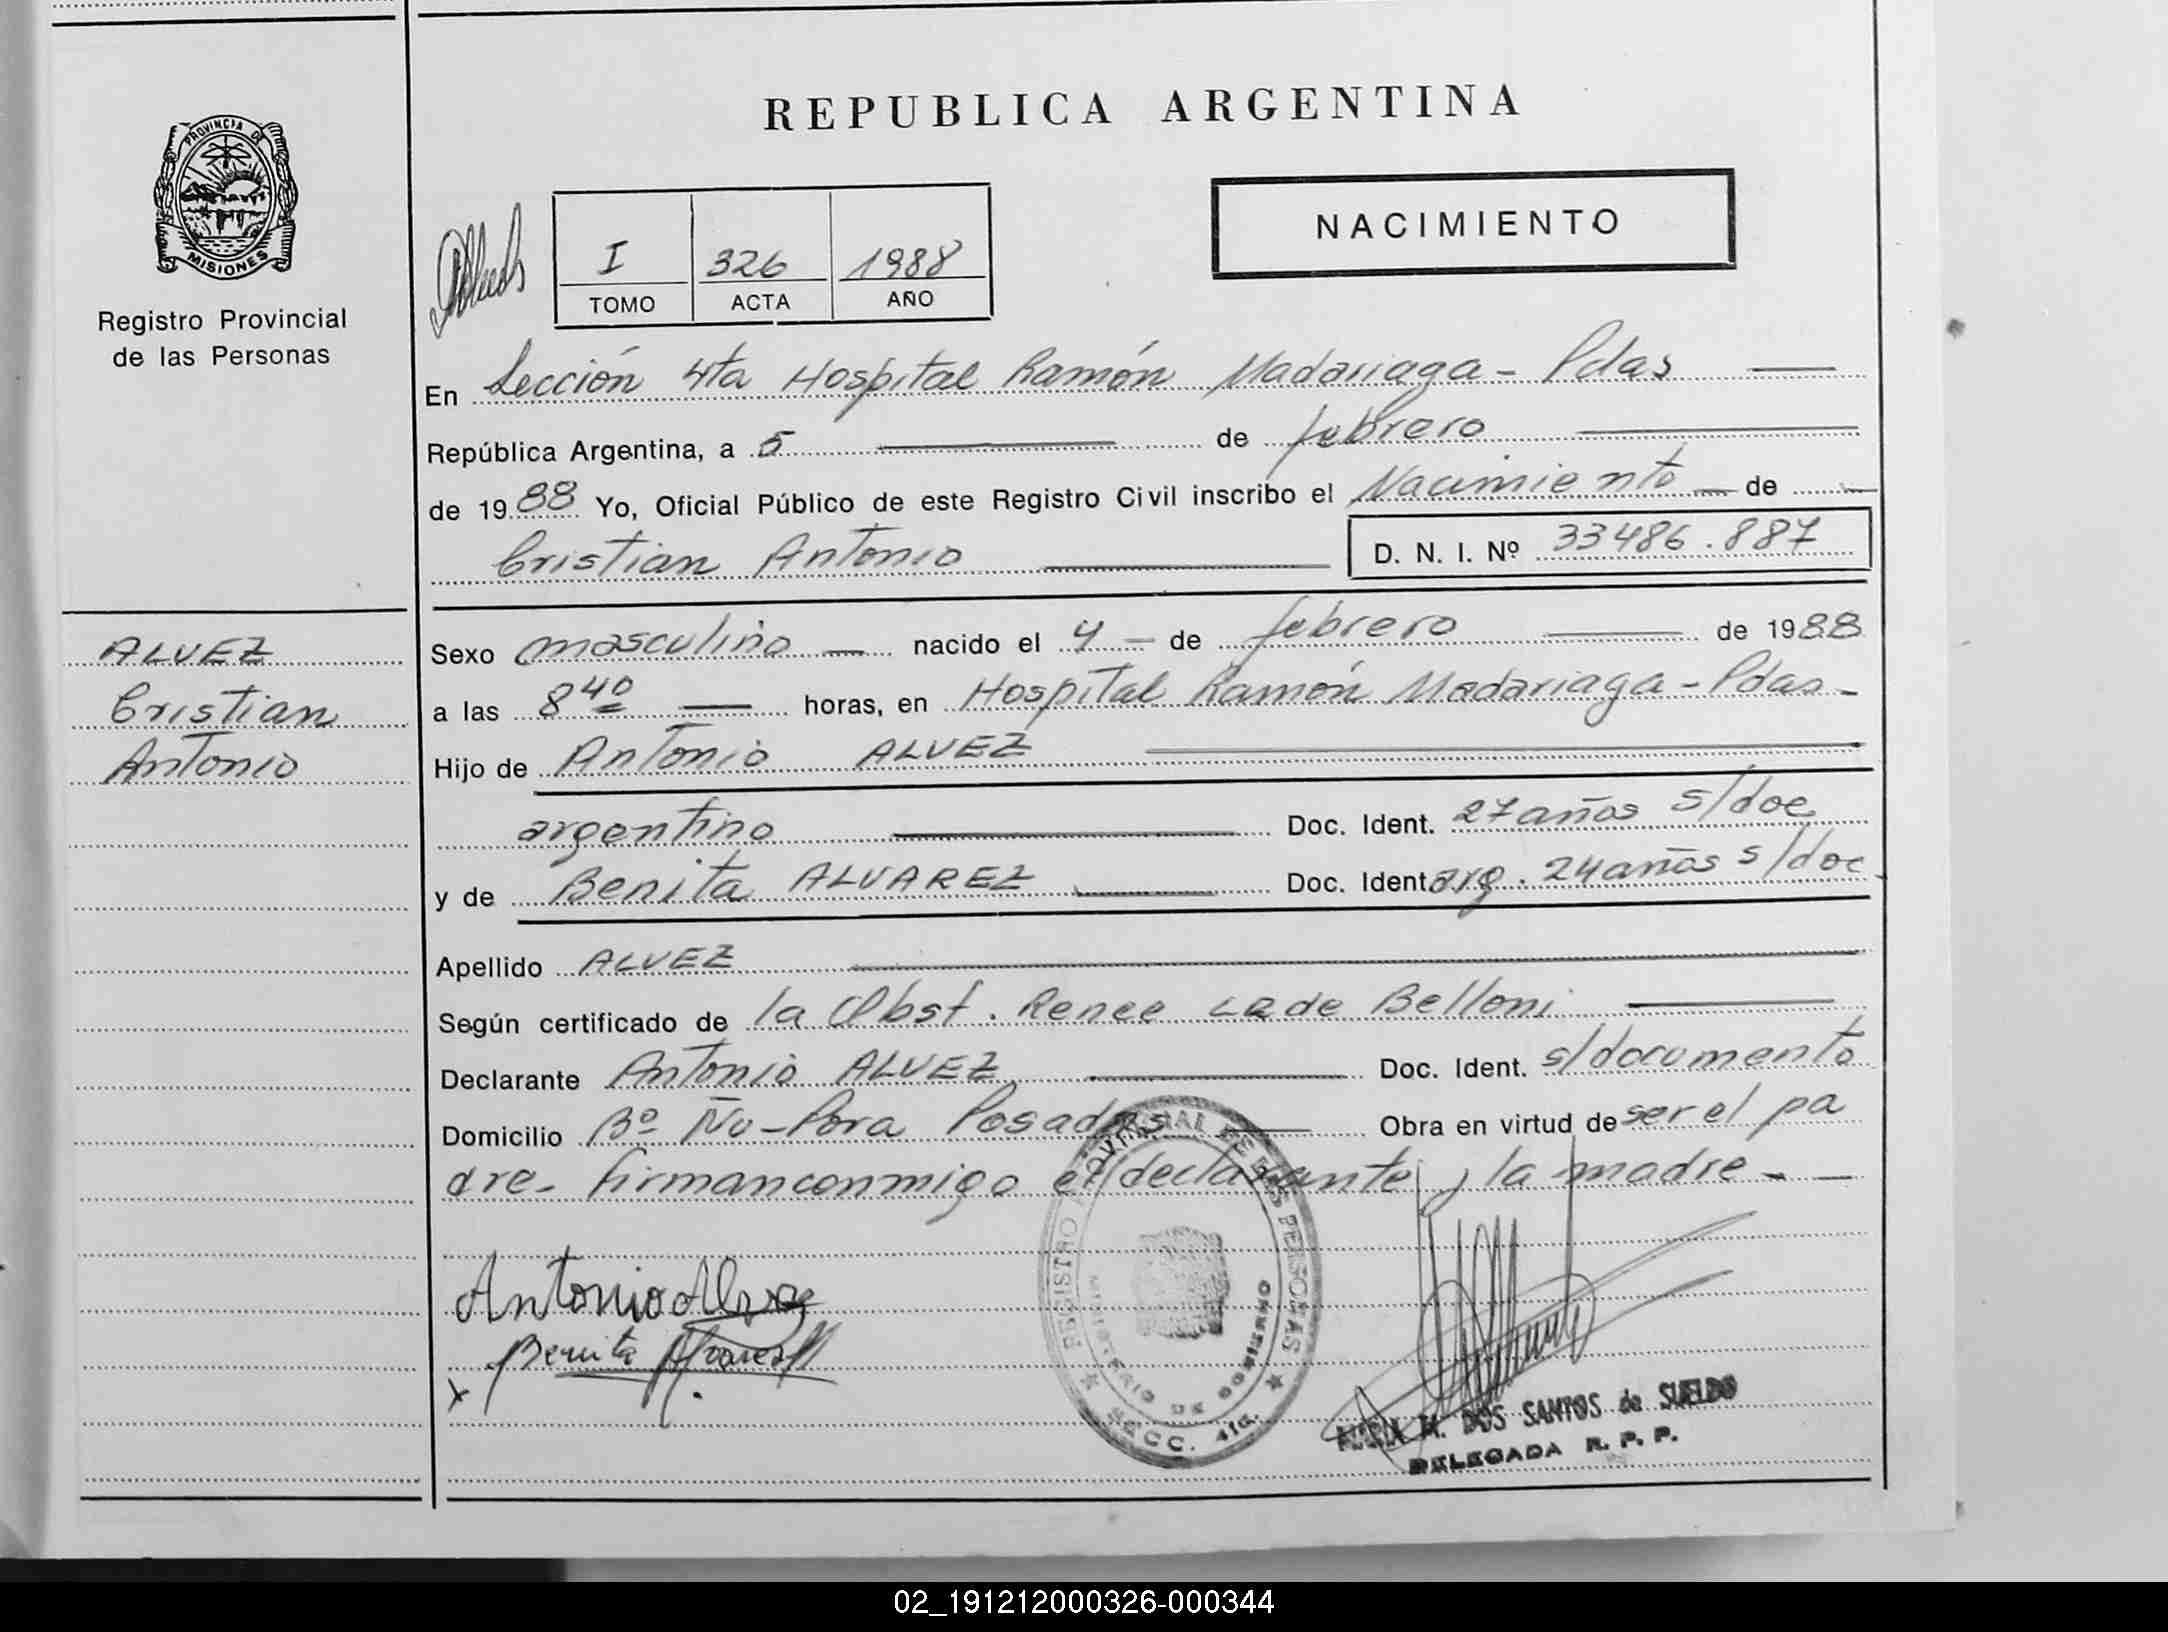 REPUBLICA ARGENTINA
PROVINCIA DE
MISIONES
Registro Provincial
de las Personas
I 326 1988
TOMO ACTA AÑO
NACIMIENTO
En Sección 4ta Hospital Ramón Madariaga - Pdas
República Argentina, a 5 de febrero
de 1988 Yo, Oficial Público de este Registro Civil inscribo el Nacimiento de
Cristian Antonio D. N. I. Nº 33486.887
ALVEZ
Cristian
Antonio
Sexo masculino nacido el 4 de febrero de 1988
a las 8 40 horas, en Hospital Ramón Madariaga - Pdas -
Hijo de Antonio ALVEZ
argentino Doc. Ident. 27 años s/doc
y de Benita ALVAREZ Doc. Ident. arg. 24 años s/doc
Apellido ALVEZ
Según certificado de la Obst. Renee L de Belloni
Declarante Antonio ALVEZ Doc. Ident. s/documento
Domicilio Bº Ñu-Pora Posadas Obra en virtud de ser el pa
dre. firman conmigo el declarante y la madre -
Antonio Alvez
x Benita Alvarez
REGISTRO PROVINCIAL DE LAS PERSONAS
MINISTERIO DE GOBIERNO
SECC. 4ta.
M. DOS SANTOS de SUELDO
DELEGADA R. P. P.
02_191212000326-000344